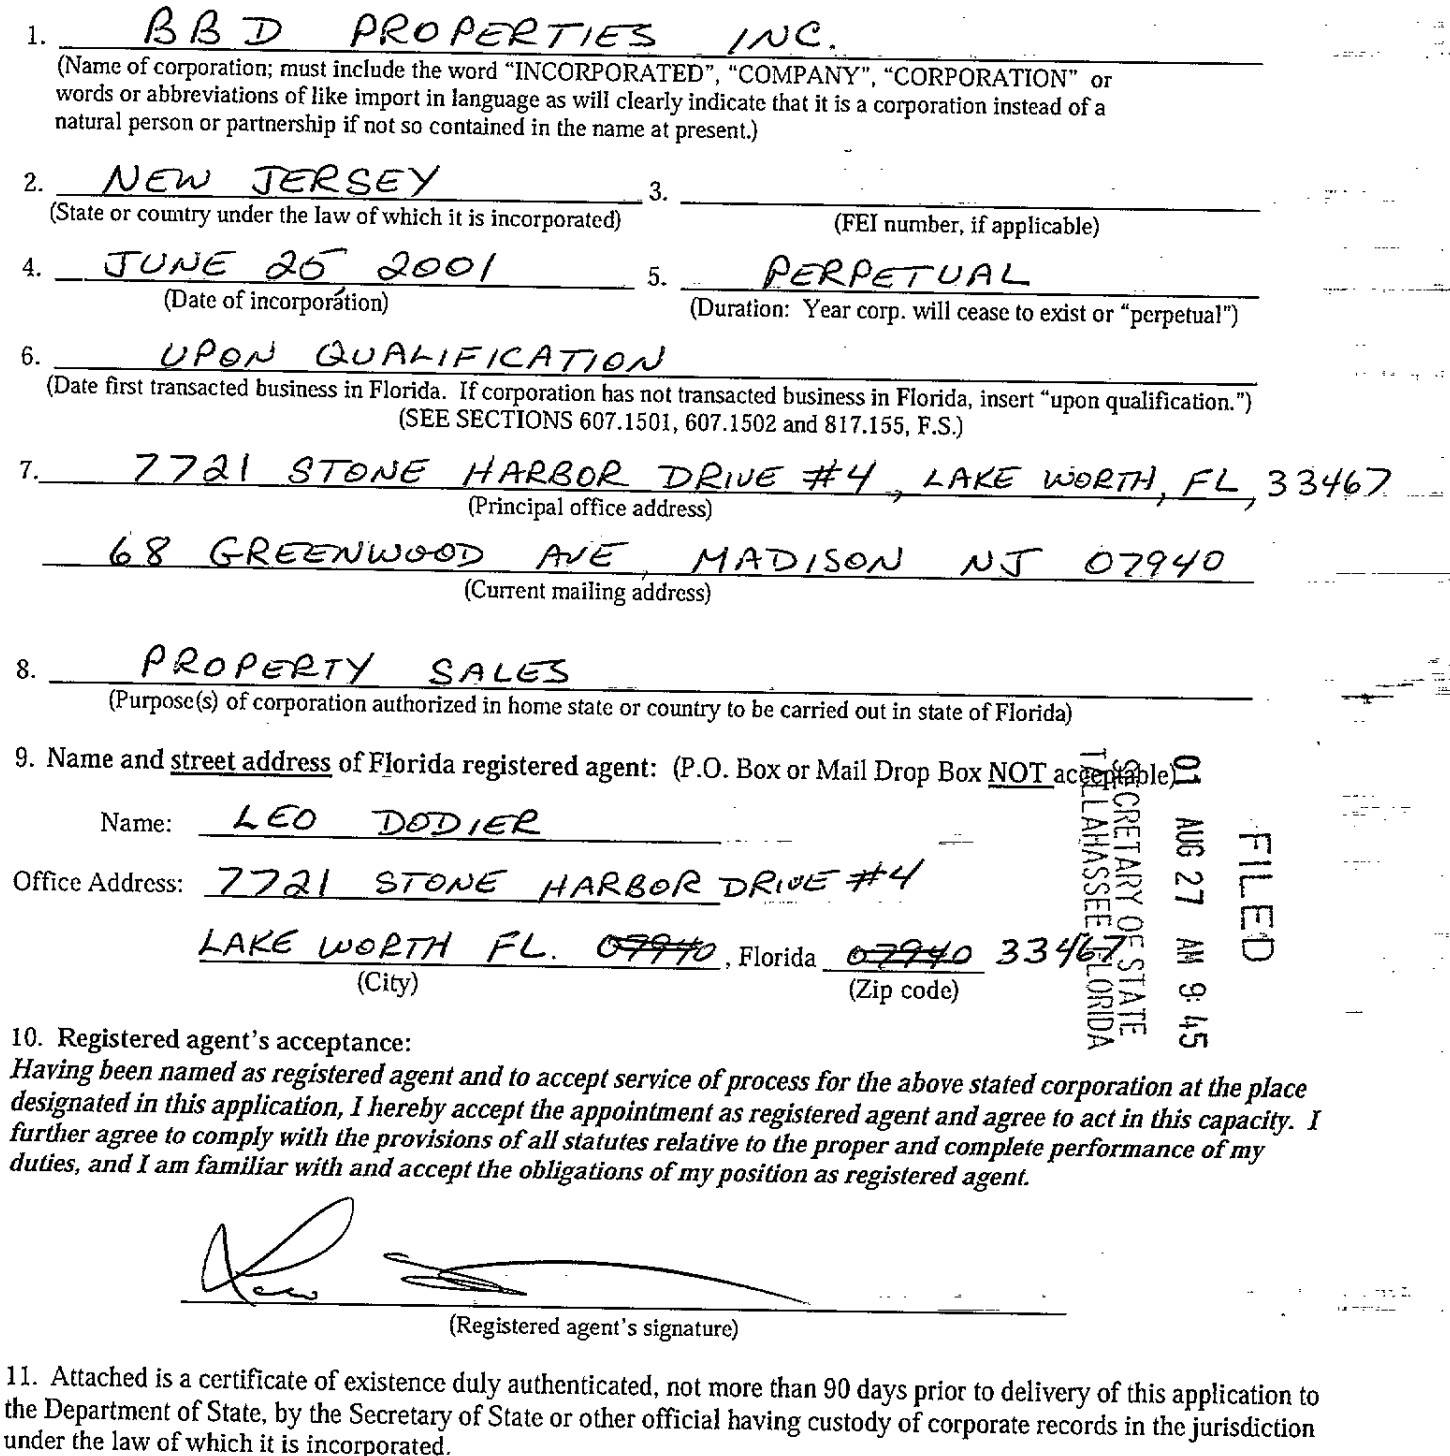 1. BBD PROPERTIES INC.
(Name of corporation; must include the word “INCORPORATED”, “COMPANY”, “CORPORATION” or
words or abbreviations of like import in language as will clearly indicate that it is a corporation instead of a
natural person or partnership if not so contained in the name at present.)
2. NEW JERSEY 3.
(State or country under the law of which it is incorporated) (FEI number, if applicable)
4. JUNE 25 2001 5. PERPETUAL
(Date of incorporation) (Duration: Year corp. will cease to exist or “perpetual”)
6. UPON QUALIFICATION
(Date first transacted business in Florida. If corporation has not transacted business in Florida, insert “upon qualification.”)
(SEE SECTIONS 607.1501, 607.1502 and 817.155, F.S.)
7. 7721 STONE HARBOR DRIVE #4, LAKE WORTH, FL, 33467
(Principal office address)
68 GREENWOOD AVE, MADISON NJ 07940
(Current mailing address)
8. PROPERTY SALES
(Purpose(s) of corporation authorized in home state or country to be carried out in state of Florida)
9. Name and street address of Florida registered agent: (P.O. Box or Mail Drop Box NOT acceptable)
Name: LEO DODIER
Office Address: 7721 STONE HARBOR DRIVE #4
LAKE WORTH FL. 07940, Florida 07940 33467
(City) (Zip code)
FILED
01 AUG 27 AM 9:45
SECRETARY OF STATE
TALLAHASSEE FLORIDA
10. Registered agent’s acceptance:
Having been named as registered agent and to accept service of process for the above stated corporation at the place
designated in this application, I hereby accept the appointment as registered agent and agree to act in this capacity. I
further agree to comply with the provisions of all statutes relative to the proper and complete performance of my
duties, and I am familiar with and accept the obligations of my position as registered agent.
(Registered agent’s signature)
11. Attached is a certificate of existence duly authenticated, not more than 90 days prior to delivery of this application to
the Department of State, by the Secretary of State or other official having custody of corporate records in the jurisdiction
under the law of which it is incorporated.